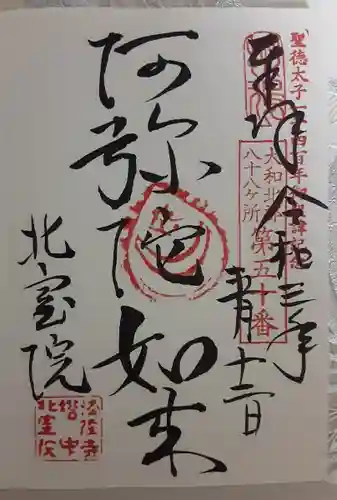 聖徳太子一千四百年御聖諱記念
奉拝
令和三年
五月十二日
大和北部
八十八ヶ所
第五十番
阿弥陀如来
北室院
法隆寺
塔中
北室院